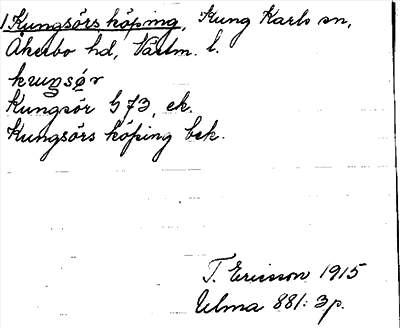 1 Kungsörs köping, Kung Karls sn,
Åkerbo hd, Västm. l.
kuŋsø̱r
Kungsör G 73, ek.
Kungsörs köping bek.
T. Ericsson 1915
Ulma 881: 3 p.